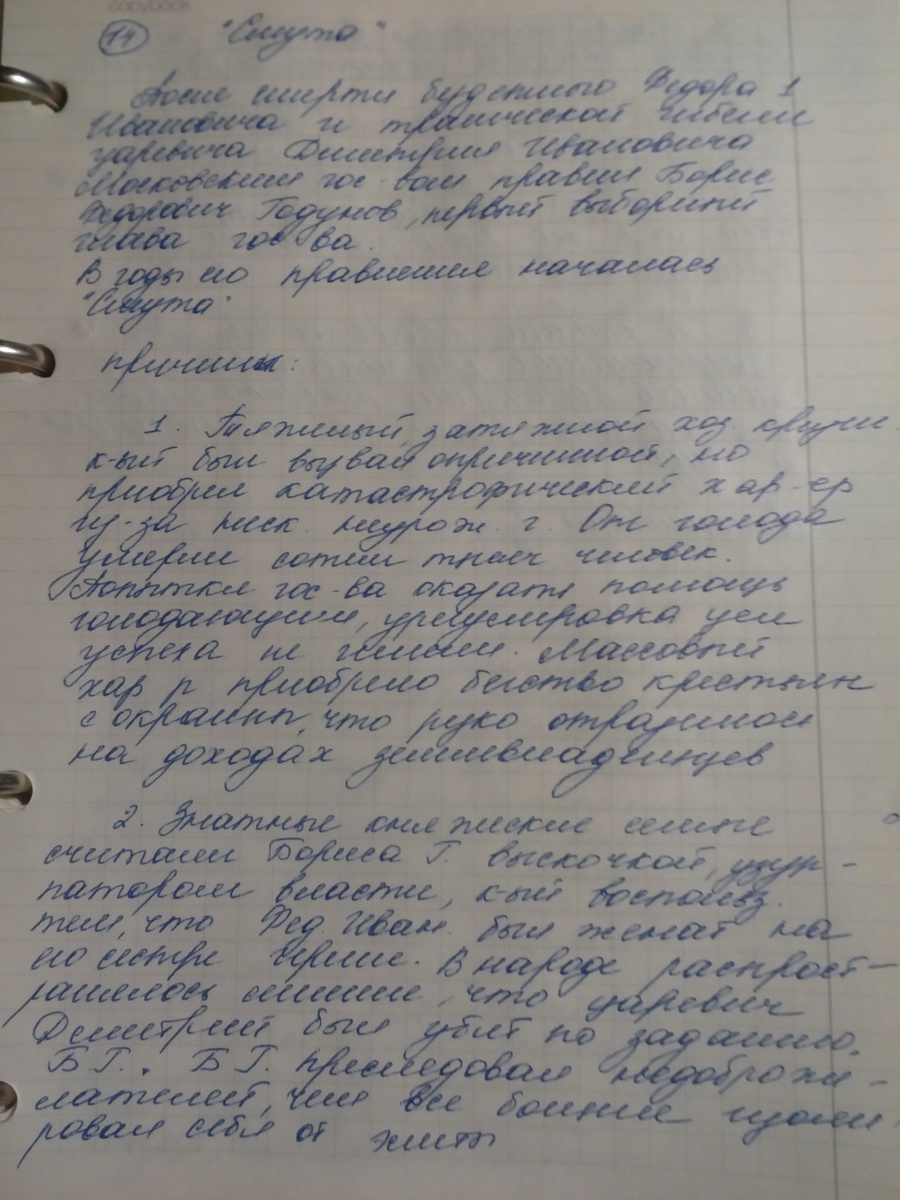 copybook
14 "Смута"
После смерти бездетного Федора 1
Ивановича и трагической гибели
царевича Дмитрия Ивановича
Московским гос-вом правил Борис
Федорович Годунов, первый выборный
глава гос-ва.
В годы его правления началась
"Смута"
причины:
1. Тяжелый, затяжной ход кризиса
к-ый был вызван опричниной, но
приобрел катастрофический хар-ер
из-за неск. неурож. г. От голода
умерли сотни тысяч человек.
Попытки гос-ва оказать помощь
голодающим, урегулировка цен
успеха не имели. Массовый
хар р приобрело бегство крестьян
с окраины, что резко отразилось
на доходах землевладельцев
2. Знатные княжеские семьи
считали Бориса Г. выскочкой, узур-
патором власти, к-ый воспольз.
тем, что Фед. Иван. был женат на
его сестре Ирине. В народе распрост-
ранялось мнение, что царевич
Дмитрий был убит по заданию
Б Г.. Б Г. преследовал недоброже-
лателей, чем все больше изоли
ровал себя от элиты